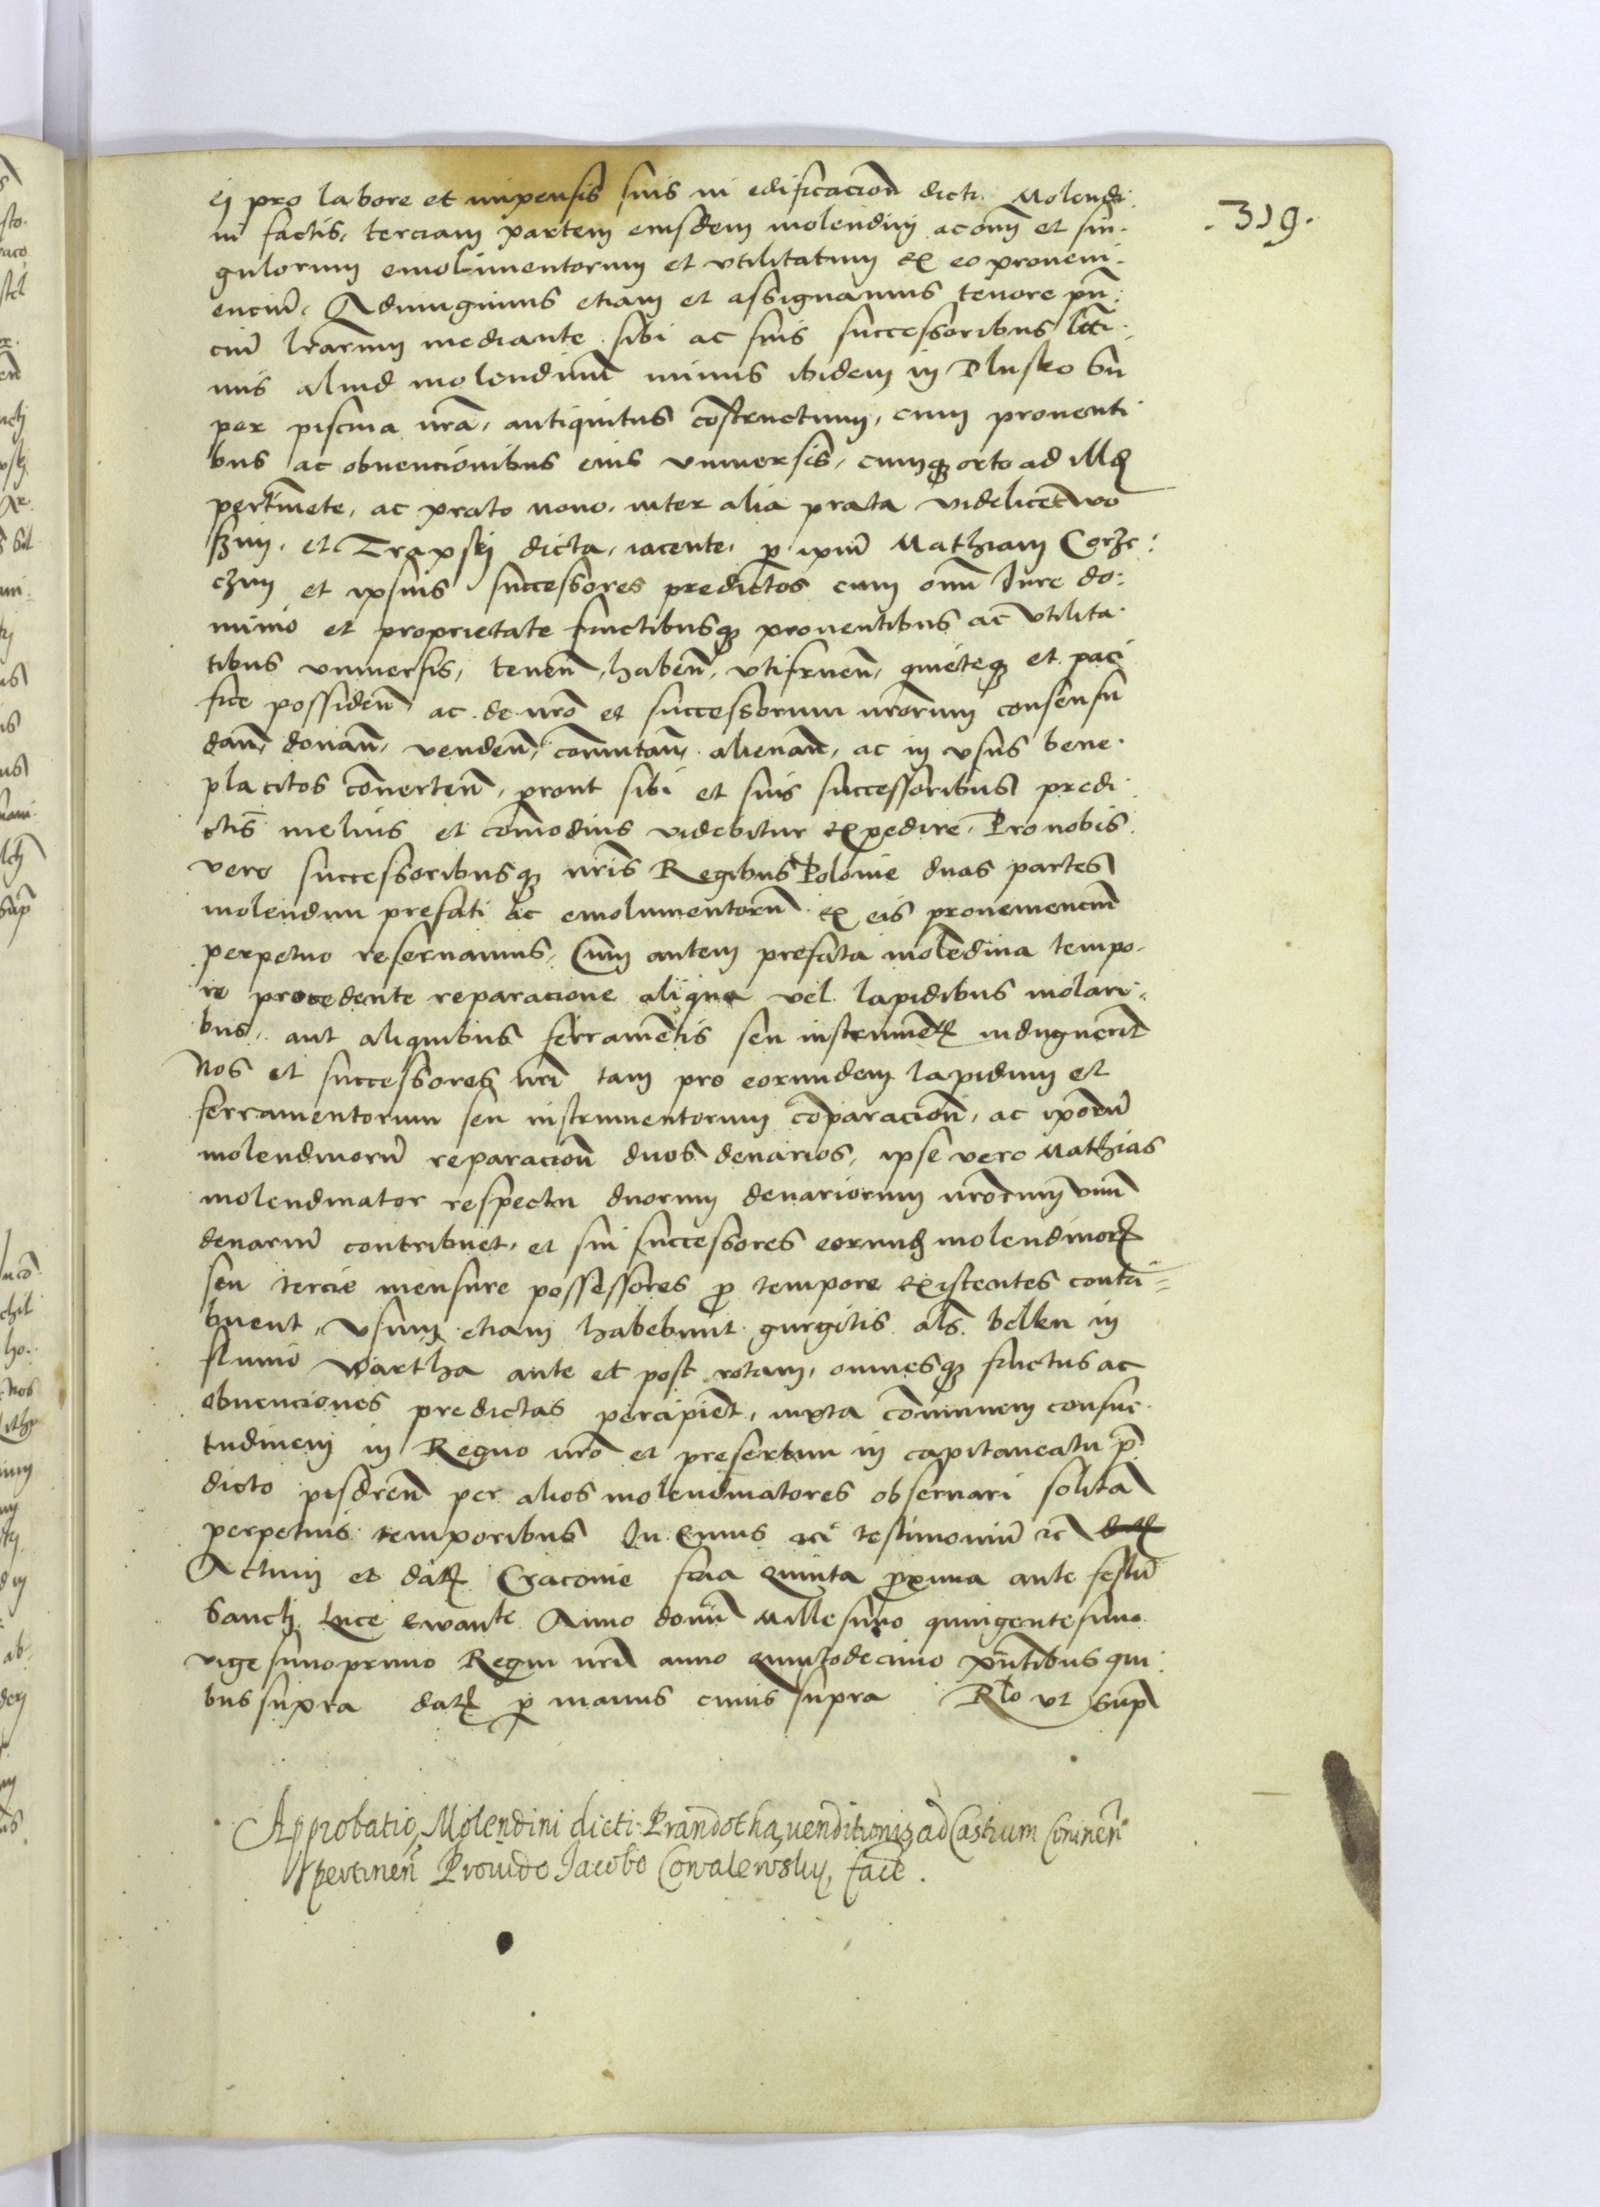 .319.
ei pro labore et impensis suis in edificacion̄ dicti Molendi-
ni factis, terciam partem eiusdem molendini ac om̄ et sin-
gulorum emolimentorum et utilitatum ex eo proveni-
enciu᷑. Adiungimus etiam et assignamus tenore pn̄-
ciu᷑ lr̄arum mediante sibi ac suis successoribus ltti-
mis aliud molendinu᷑ minus ibidem in Plusko su-
per piscina nr̄a, antiquitus cōstructum, cum proventi
bus ac obvencionibus eius universis, cumq̨ orto ad illd̄
pertinēte, ac prato novo, inter alia prata videlicet wo
szni, et Trapski dicta, iacente, p ip̄m Mathiam Corze-
cznii et ipsius successores predictos cum om̄i Iure do-
minio et proprietate fructibusq̨ proventibus ac utilita-
tibus universis, tenen̄, haben̄, utifruen̄, quieteq̨ et paci
fice possiden̄ ac de nr̄o et successorum nr̄orum consensu
dan̄, donan̄, venden̄, com̄utan̄, alienan̄, ac in usus bene-
placitos con̄erten̄, prout sibi et suis successoribus predi-
ctis melius et com̄odius videbitur expedire. Pro nobis
vero successoribusq̨ nr̄is Regibus Polonie duas partes
molendini prefati ac emolumentoru᷑ ex eis proveniencium
perpetuo reservamus, Cum autem prefata molēdina tempo-
re procedente reparacione aliqua vel lapidibus molari-
bus, aut aliquibus ferramētis seu instrumētꝭ indiguerīt
Nos et successores nr̄i tam pro eorundem lapidum et
ferramentorum seu instrumentorum cōparacion̄, ac ip̄oru᷑
molendinoru᷑ reparacion̄ duos denarios, ipse vero Mathias
molendinator respectu duorum denariorum nr̄orum unu᷑
denariu᷑ contribuet, et sui successores eorund̄ molendinorꝝ
seu tercie mensure possessores p tempore existentes contri-
buent, Usum etiam habebunt gurgitis als̄ bellen in
flumo Wartha ante et post rotam, omnesq̨ fructus ac
obvenciones predictas percipiēt, iuxta com̄unem consue-
tudinem in Regno nr̄o et presertim in capitaneatu p̄
dicto pisdren̄ per alios molendinatores observari solitā
perpetuis temporibus In Cuius rei testimoniu᷑ zc
Actum et datꝭ Cracovie feria quinta proxima ante festu᷑
Sancti Luce ewante Anno domi᷑ Millesimo quingentesimo
vigesimoprimo Regni nr̄i anno quintodecimo pn̄tibus qui-
bus supra datꝭ p manus cuius supra R̄lo ut sup̄
Approbatio Molendini dicti Prandotha, venditionis ad Castrum Coninen̄
pertinen̄ Provido Jacobo Covalewsky, facte.